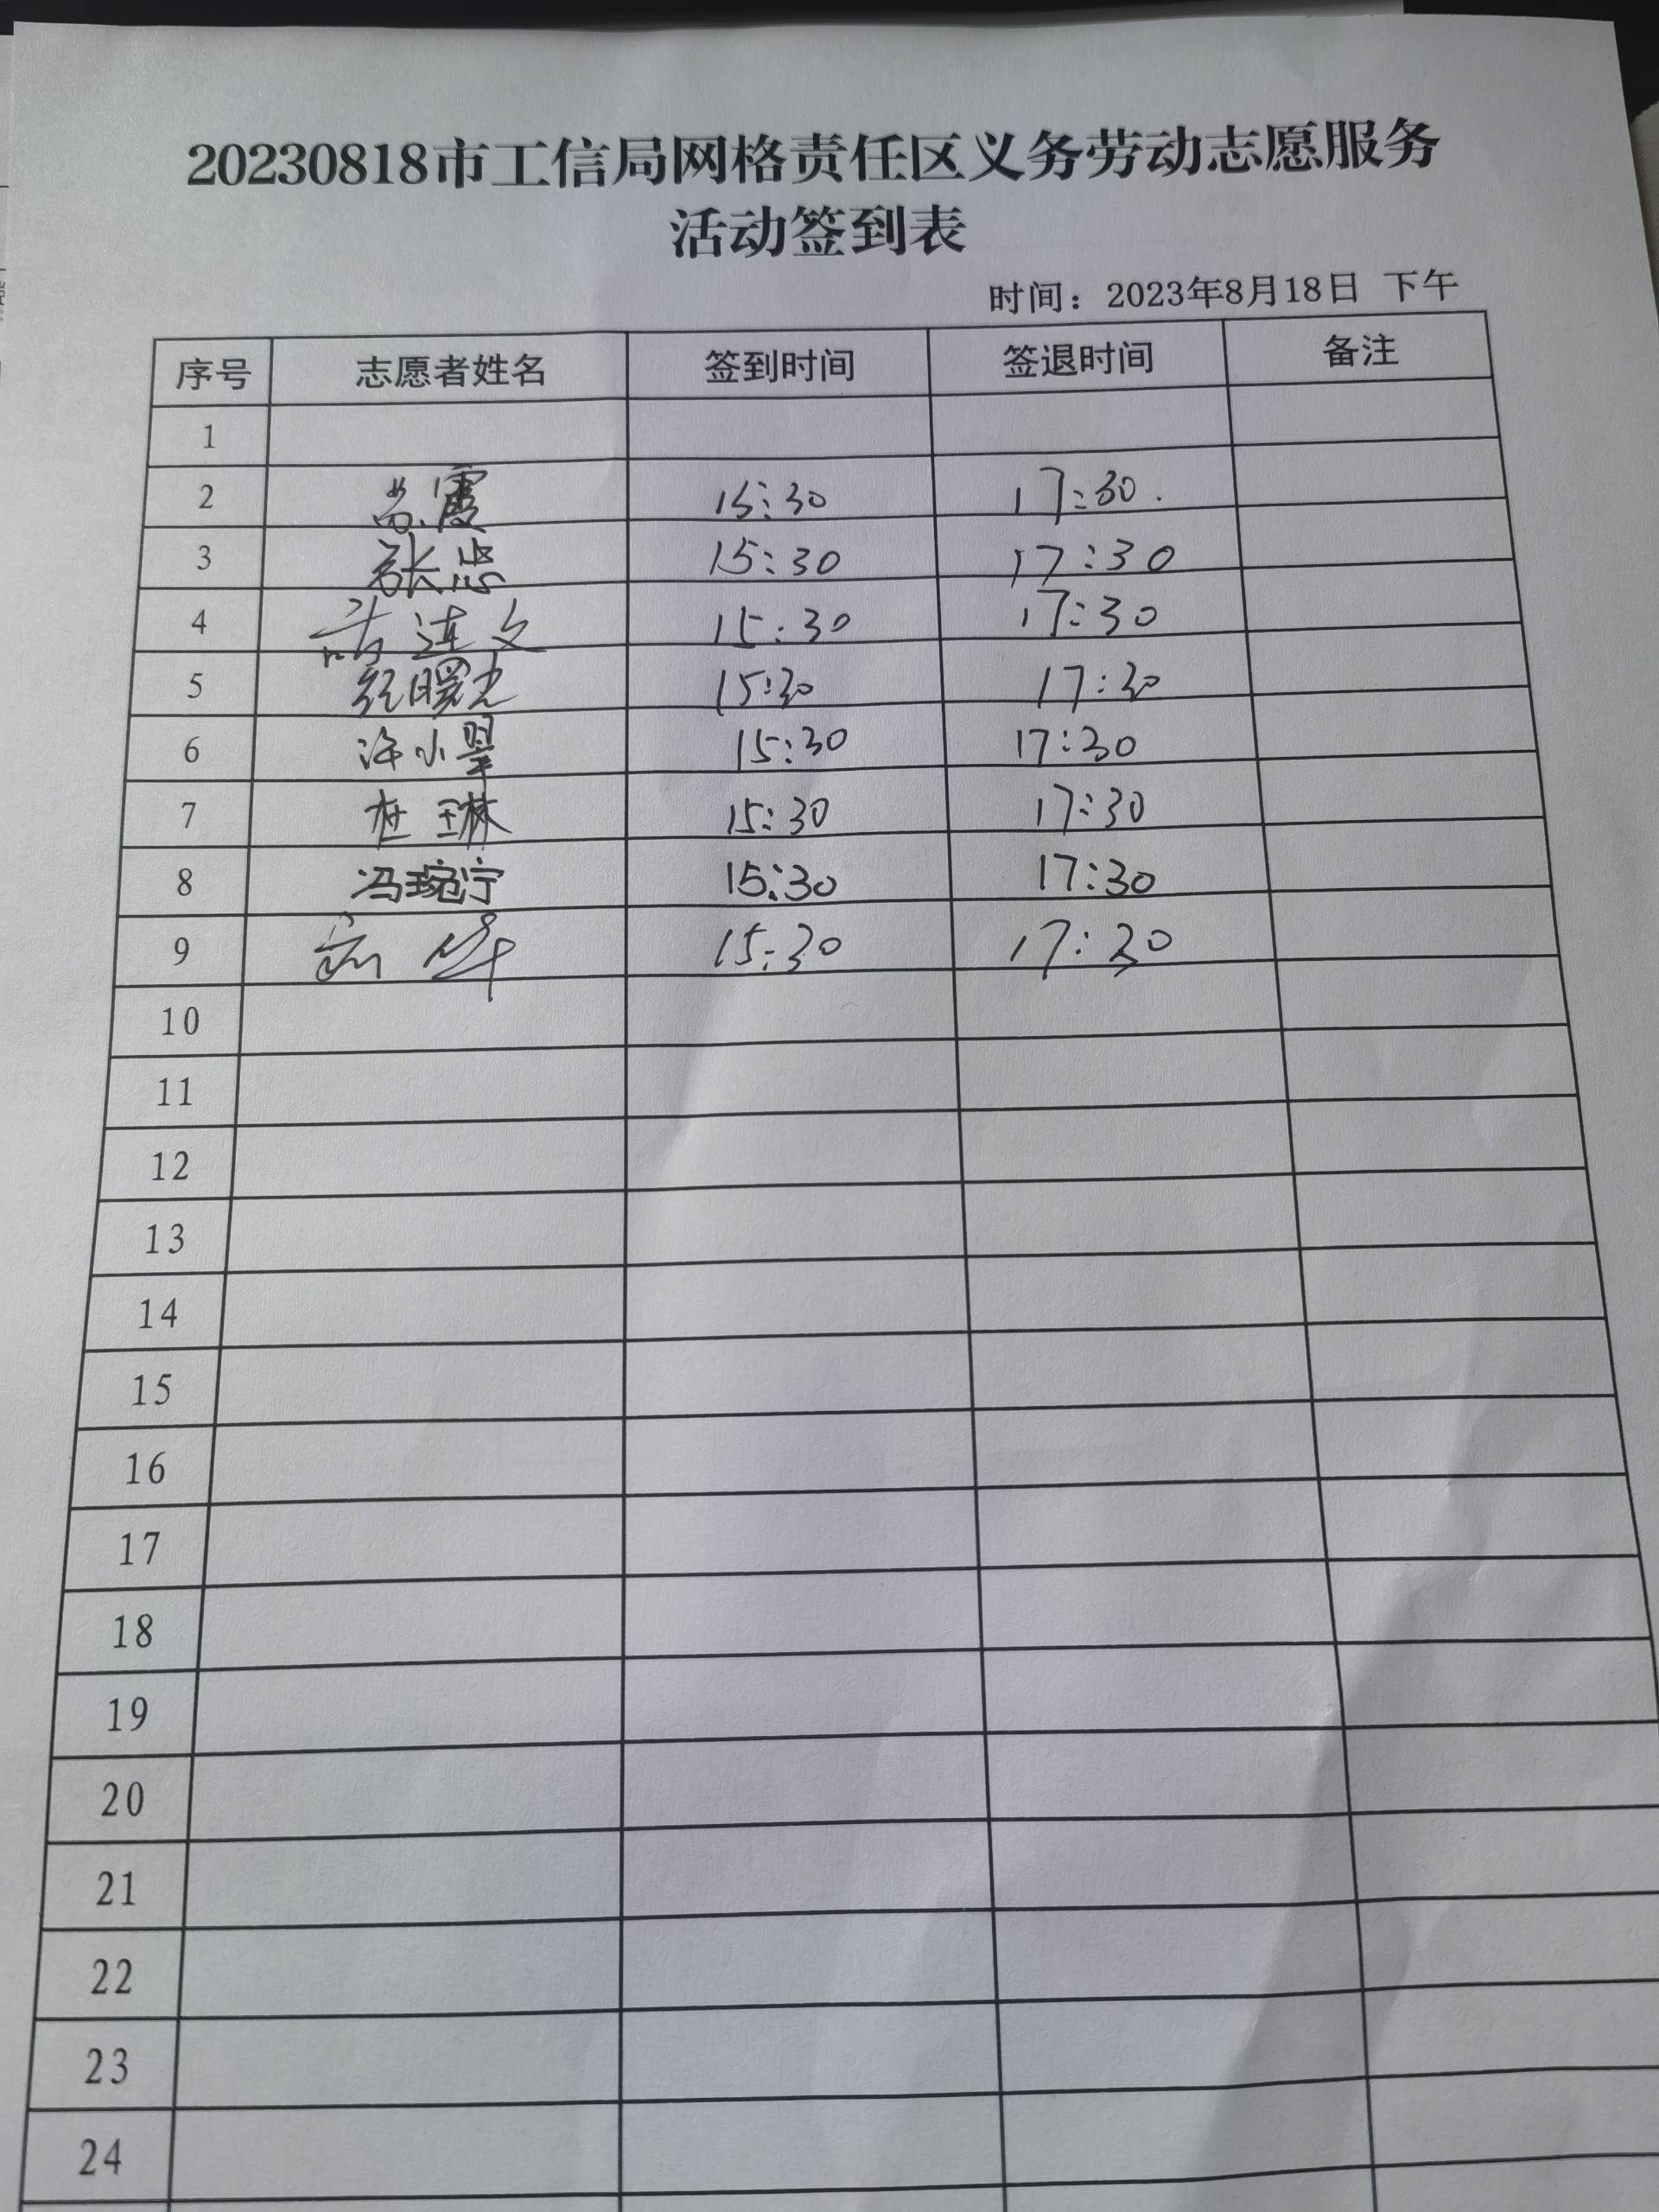 20230818市工信局网格责任区义务劳动志愿服务
活动签到表
时间：2023年8月18日 下午
序号 志愿者姓名 签到时间 签退时间 备注
1
2 尚霞 15:30 17:30.
3 张忠 15:30 17:30
4 连文 15:30 17:30
5 曙光 15:30 17:30
6 小翠 15:30 17:30
7 杜琳 15:30 17:30
8 冯琬宁 15:30 17:30
9 15:30 17:30
10
11
12
13
14
15
16
17
18
19
20
21
22
23
24